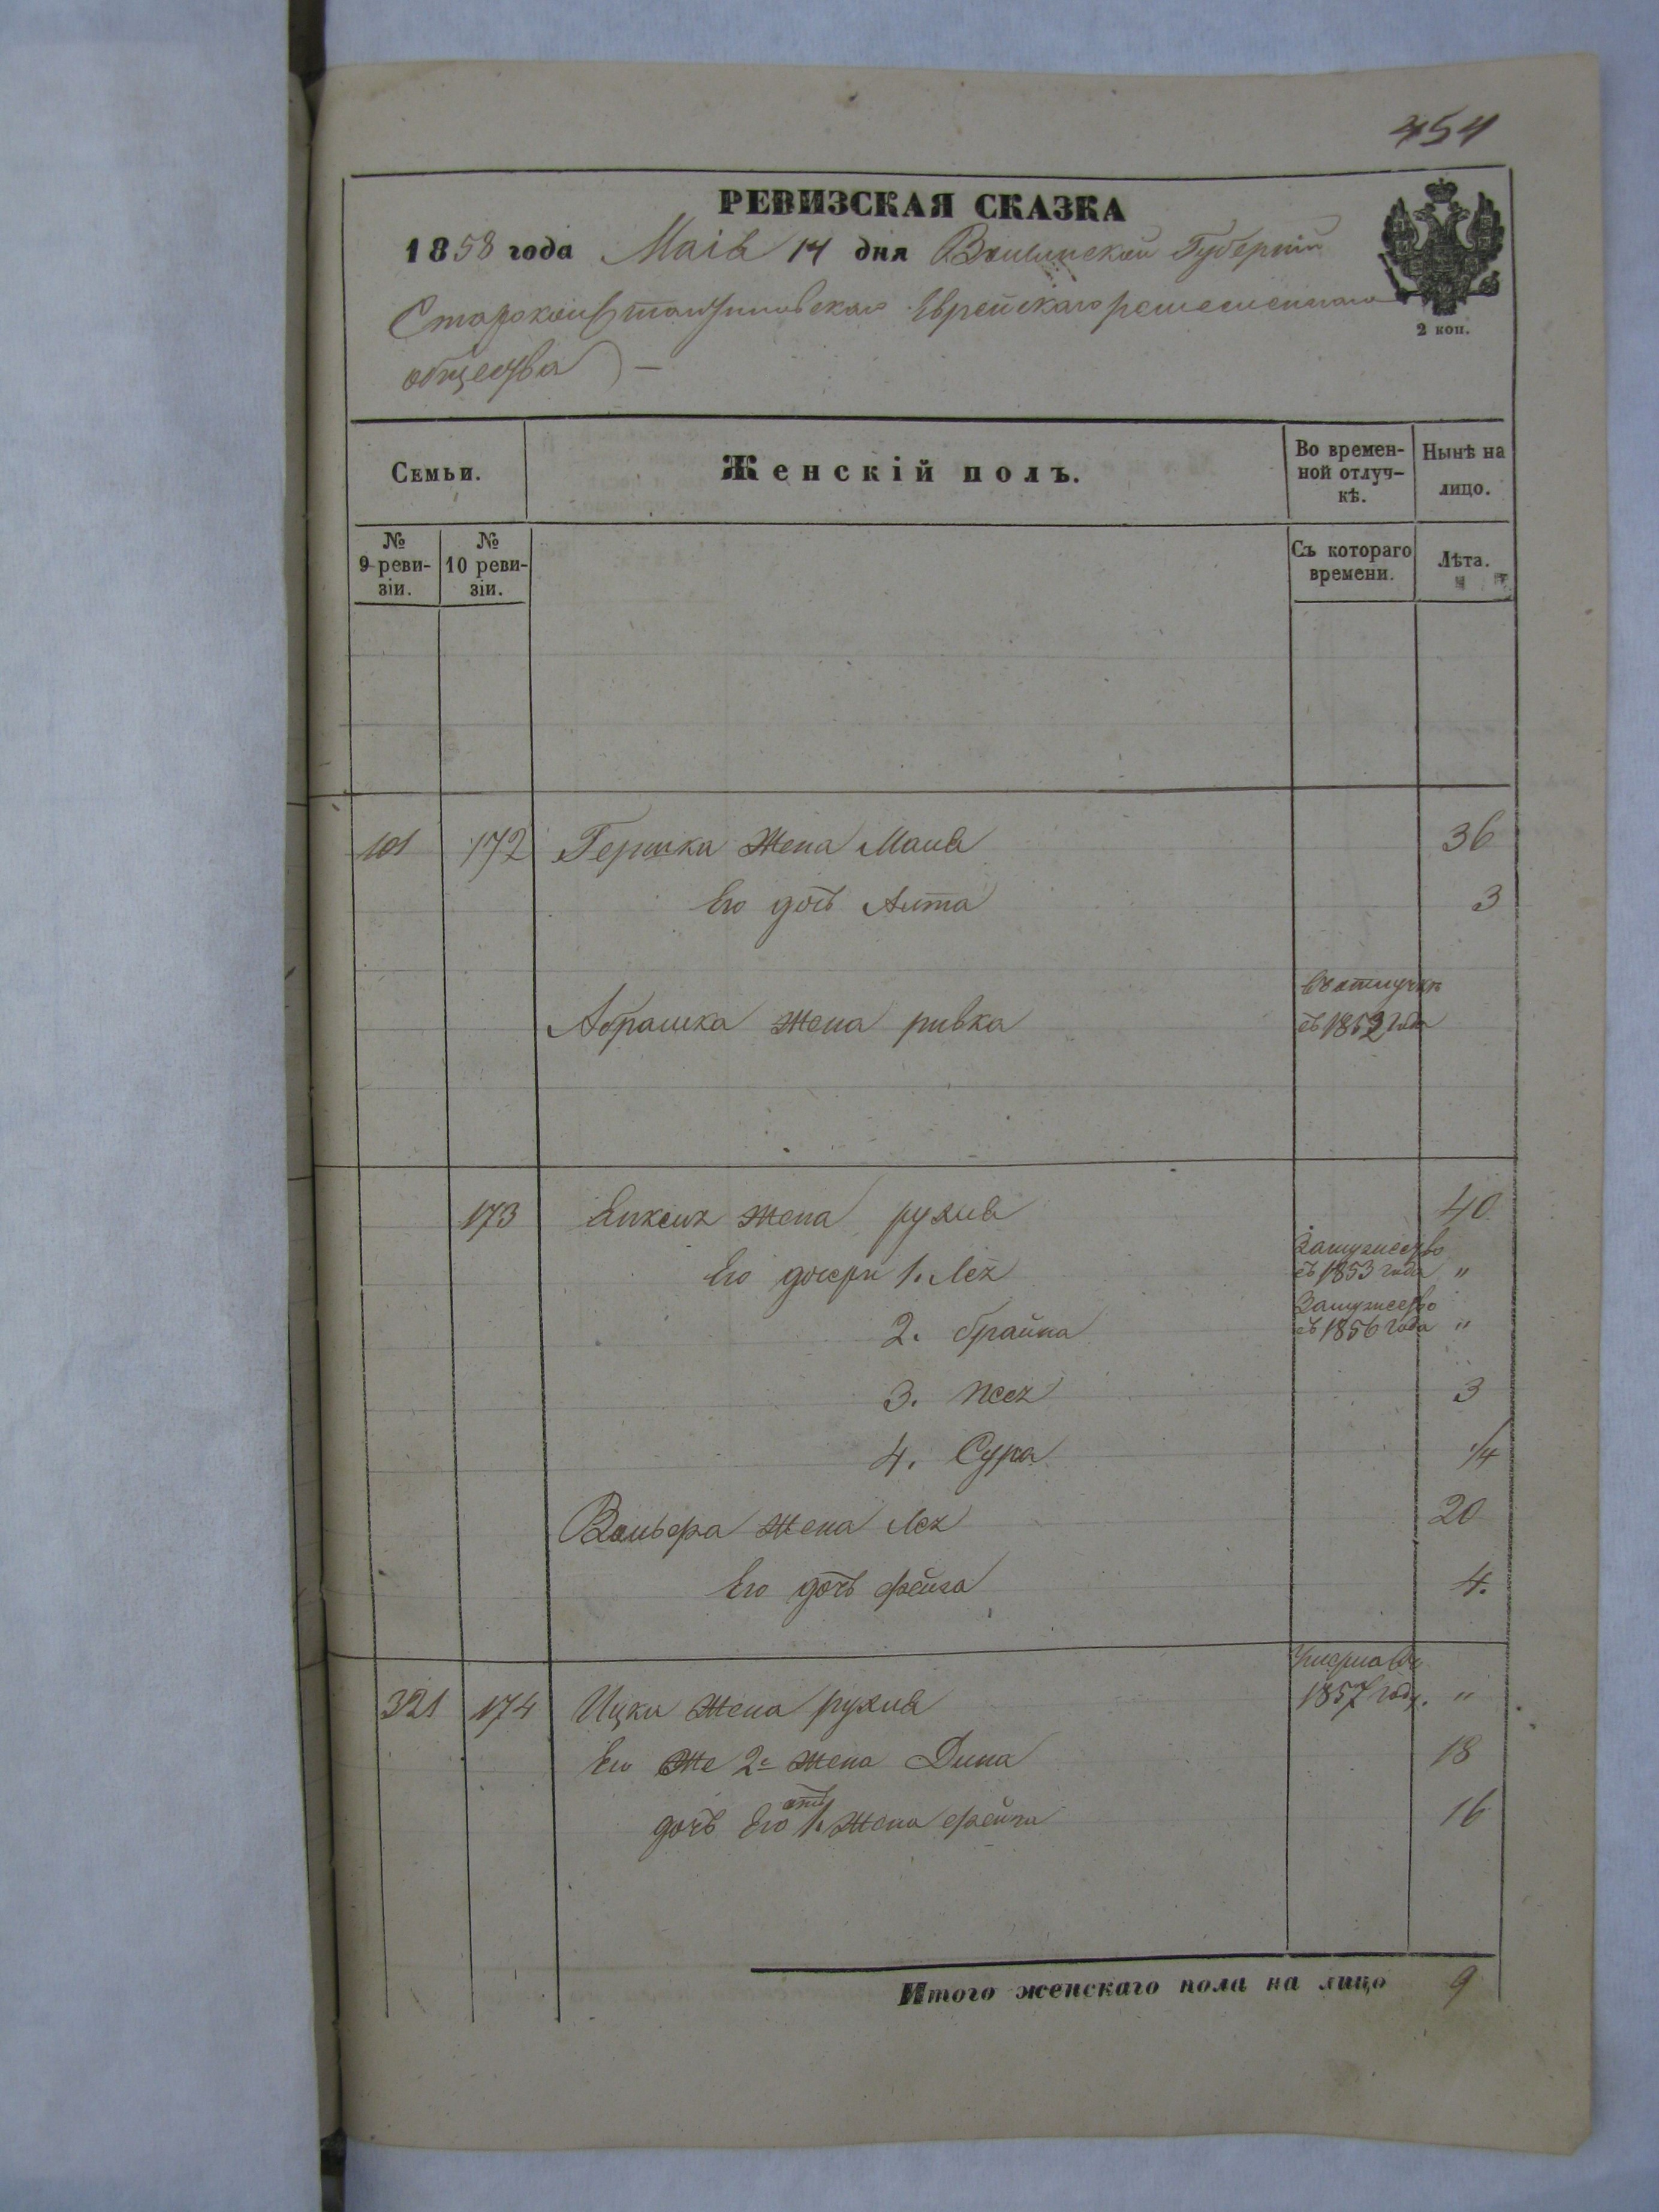 454
РЕВИЗСКАЯ СКАЗКА
1858 года Маія 14 дня Волынской Губерніи
Староконстантиновскаго Еврейскаго ремесленнаго
общества
2 коп.
Семьи. Женскій полъ. Во времен-ной отлуч-кѣ. Нынѣ на лицо.
№ 9 реви-зіи. № 10 реви-зіи. Съ котораго времени. Лѣта.
101 172 Гершка жена Маня 36
Его дочь Алта 3
Въ отлучкѣ
Абрашка жена ривка съ 1852 года
173 жена рухля 40
Замужество
Его дочери 1. Лея съ 1853 года "
Замужество
2. брайна съ 1856 года "
3. песя 3
4. Сура 1/4
Вольфа жена Лея 20
Его дочь фейга 4.
Умерла въ
321 174 Ицки жена рухля 1857 году. "
Его же 2я жена Дина 18
дочь Его отъ 1. жена фейга 16
Итого женскаго пола на лицо 9